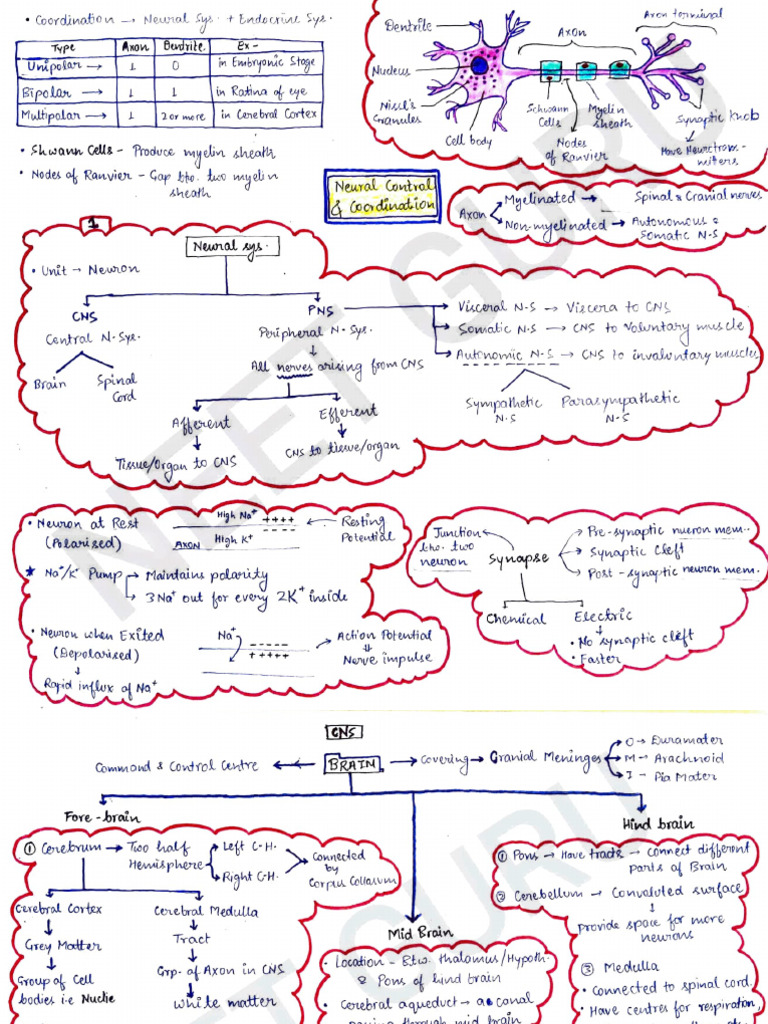 • Coordination → Neural Sys. + Endocrine Sys.
Type Axon Dendrite Ex-
Unipolar → 1 0 in Embryonic Stage
Bipolar → 1 1 in Ratina of eye
Multipolar → 1 2 or more in Cerebral Cortex
• Shwann Cells - Produce myelin sheath
• Nodes of Ranvier - Gap btw. two myelin
sheath
Dendrite
Nucleus
Nissl's
Granules
Cell body
Axon
Schwann
Cells
Myelin
sheath
Nodes
of Ranvier
Axon terminal
Synaptic knob
Have Neurotrans-
miters.
Neural Control
& Coordination
Axon
Myelinated → Spinal & Cranial nerves
Non-myelinated → Autonomous &
Somatic N-S
1
Neural sys.
• Unit → Neuron
CNS
Central N-Sys.
Brain
Spinal
Cord
PNS
Peripheral N-Sys.
All nerves arising from CNS
Afferent
Tissue/Organ to CNS
Efferent
CNS to tissue/organ
Visceral N-S → Viscera to CNS
Somatic N-S → CNS to voluntary muscle
Autonomic N-S → CNS to involuntary muscles
Sympathetic
N-S
Parasympathetic
N-S
• Neuron at Rest
(Polarised)
High Na+
++++
----
AXON High K+
Resting
Potential
★ Na+/K+ Pump
→ Maintains polarity
→ 3Na+ out for every 2K+ inside
• Neuron when Exited
(Depolarised)
Rapid influx of Na+
Na+
----
+++++
Action Potential
⇓
Nerve impulse
Junction
btw. two
neuron
Synapse
→ Pre-synaptic nueron mem.
→ Synaptic Cleft
→ Post-synaptic neuron mem.
Chemical
Electric
• No synaptic cleft
• Faster
CNS
Command & Control Centre
BRAIN
Covering → Cranial Meninges
O → Duramater
M → Arachnoid
I → Pia Mater
Fore-brain
① Cerebrum → Two half
Hemisphere
Left C-H.
Right C-H.
Connected
by
Corpus Collasum
Cerebral Cortex
Grey Matter
Group of Cell
bodies i.e Nuclie
Cerebral Medulla
Tract
Grp. of Axon in CNS
White matter
Mid Brain
• Location - Btw. thalamus/Hypoth.
& Pons of hind brain
• Cerebral aqueduct → a canal
passing through mid brain
Hind brain
① Pons → Have tracts → connect different
parts of Brain
② Cerebellum → Convoluted surface
Provide space for more
neurons
③ Medulla
• Connected to spinal cord.
• Have centres for respiration,
NEET GURU